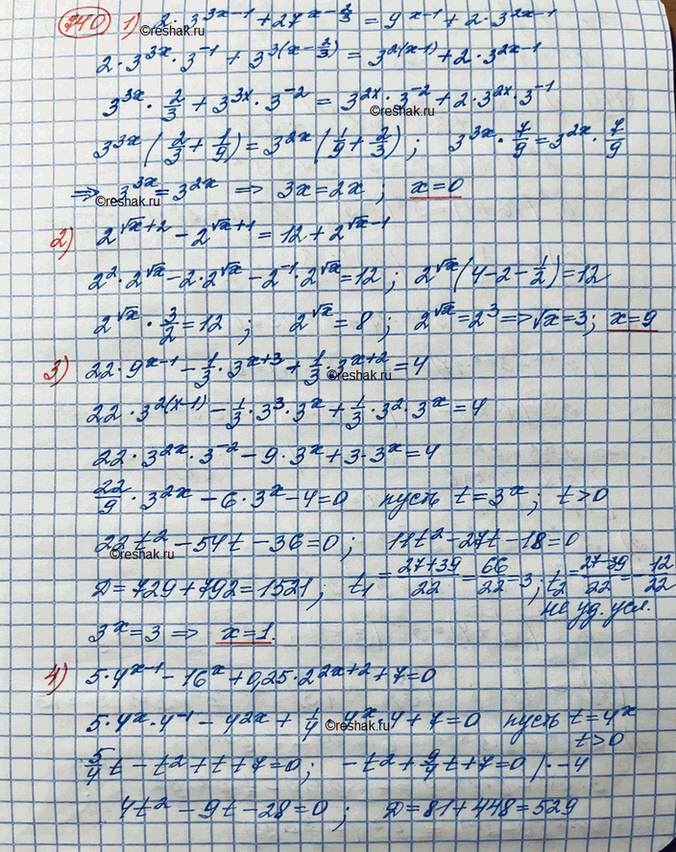 740 1) 2·3^(3x-1) + 27^(x-2/3) = 9^(x-1) + 2·3^(2x-1)
©reshak.ru
2·3^(3x)·3^(-1) + 3^(3(x-2/3)) = 3^(2(x-1)) + 2·3^(2x-1)
3^(3x)·2/3 + 3^(3x)·3^(-2) = 3^(2x)·3^(-2) + 2·3^(2x)·3^(-1)
©reshak.ru
3^(3x)(2/3 + 1/9) = 3^(2x)(1/9 + 2/3); 3^(3x)·7/9 = 3^(2x)·7/9
⇒ 3^(3x) = 3^(2x) ⇒ 3x = 2x; x=0
©reshak.ru
2) 2^(√x+2) - 2^(√x+1) = 12 + 2^(√x-1)
2^2·2^(√x) - 2·2^(√x) - 2^(-1)·2^(√x) = 12; 2^(√x)(4-2-1/2) = 12
2^(√x)·3/2 = 12; 2^(√x) = 8; 2^(√x) = 2^3 ⇒ √x = 3; x=9
3) 22·9^(x-1) - 1/3·3^(x+3) + 1/3·3^(x+2) = 4
©reshak.ru
22·3^(2(x-1)) - 1/3·3^3·3^x + 1/3·3^2·3^x = 4
22·3^(2x)·3^(-2) - 9·3^x + 3·3^x = 4
22/9·3^(2x) - 6·3^x - 4 = 0 пусть t = 3^x; t>0
22t^2 - 54t - 36 = 0; 11t^2 - 27t - 18 = 0
©reshak.ru
D = 729 + 792 = 1521; t₁ = (27+39)/22 = 66/22 = 3; t₂ = (27-39)/22 = -12/22
не уд. усл.
3^x = 3 ⇒ x=1.
4) 5·4^(x-1) - 16^x + 0,25·2^(2x+2) + 7 = 0
5·4^x·4^(-1) - 4^(2x) + 1/4·4^x·4 + 7 = 0 пусть t = 4^x
©reshak.ru
t>0
5/4t - t^2 + t + 7 = 0; -t^2 + 9/4t + 7 = 0 /·-4
4t^2 - 9t - 28 = 0; D = 81 + 448 = 529